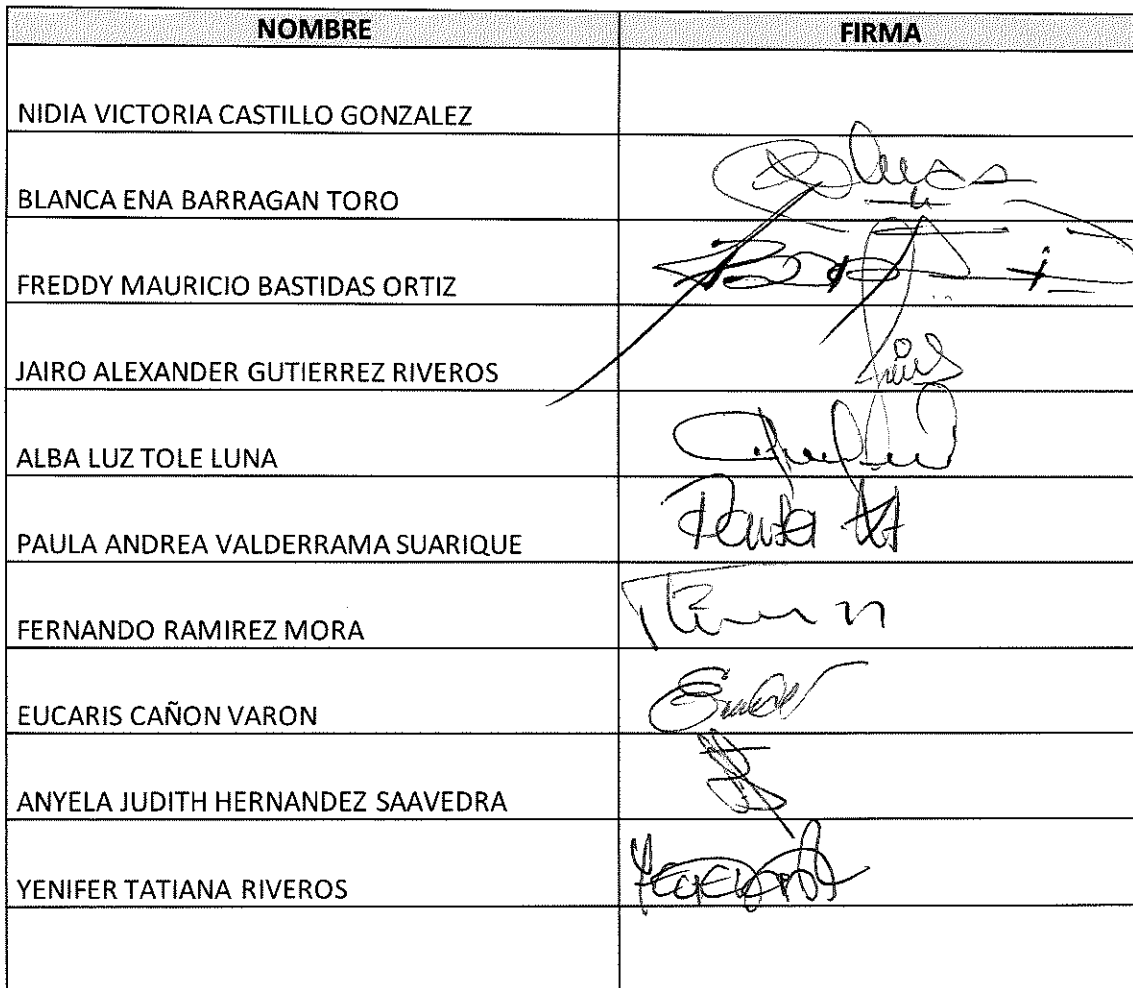 NOMBRE FIRMA
NIDIA VICTORIA CASTILLO GONZALEZ
BLANCA ENA BARRAGAN TORO
FREDDY MAURICIO BASTIDAS ORTIZ
JAIRO ALEXANDER GUTIERREZ RIVEROS
ALBA LUZ TOLE LUNA
PAULA ANDREA VALDERRAMA SUARIQUE Paula
FERNANDO RAMIREZ MORA
EUCARIS CAÑON VARON
ANYELA JUDITH HERNANDEZ SAAVEDRA
YENIFER TATIANA RIVEROS